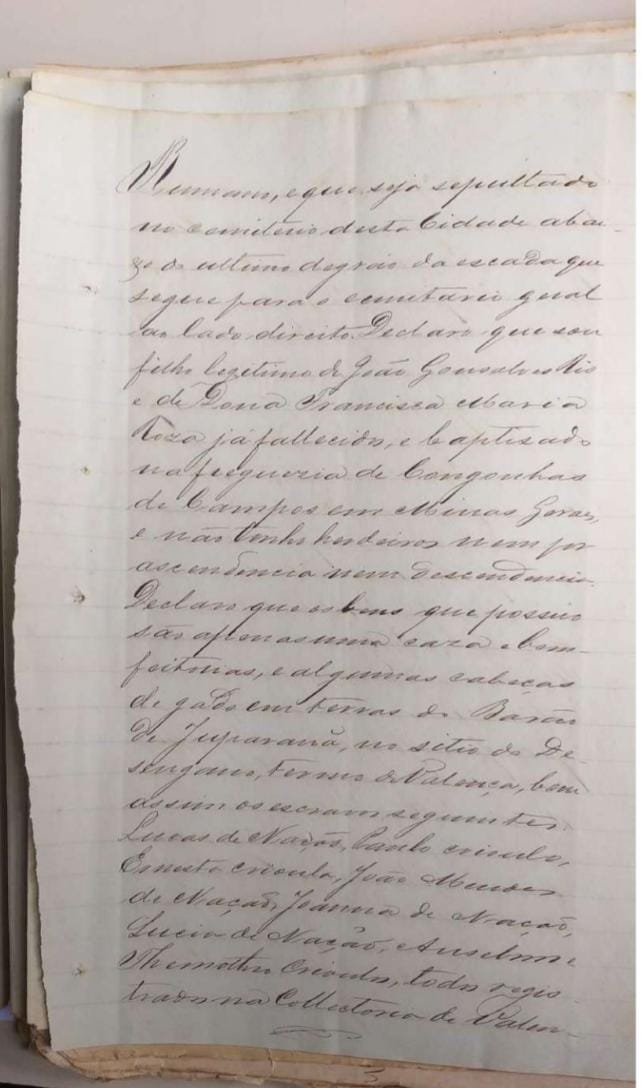 Rumano, e que seja sepultado
no cemiterio desta Cidade abai-
xo do ultimo degráo da escada que
segue para o cemitario geral
ao lado direito. Declaro que sou
filho legitimo de João Gonsalves Rio
e de Dona Francisca Maria
Roza já fallecidos, e baptisado
na freguezia de Congonhas
de Campos em Minas Geraes,
e não tenho herdeiros nem por
ascendencia nem descendencia.
Declaro que os bens que possuo
são apenas uma caza e bem-
feitorias, e algumas cabeças
de gado em terras do Barão
de Juparanã, no sitio do De-
sengano, termo de Valença, bem
assim os escravos seguintes:
Lucas de Nação, Paulo crioulo,
Ernesto crioulo, João Mendes
de Nação, Joanna de Nação,
Lucia de Nação, Anselmo e
Themotheo Crioulos, todos regis-
trados na Collectoria de Valen-